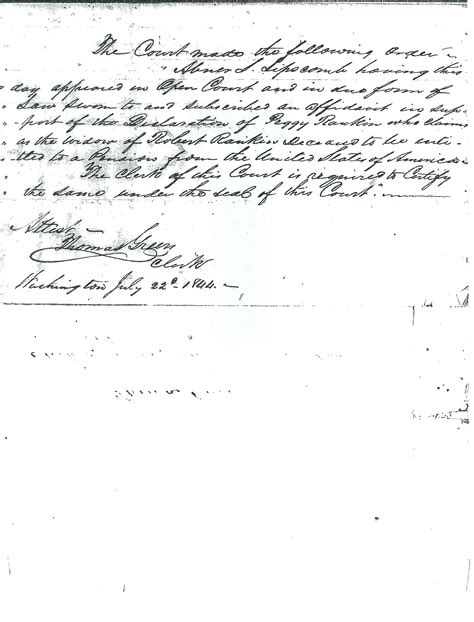 The Court made the following order —
"Abner S. Lipscomb having this
" day appeared in Open Court and in due form of
" Law sworn to and subscribed an affidavit in sup-
" port of the Declaration of Peggy Rankin who claims
" as the widow of Robert Rankin Deceased to be enti-
" tled to a Pension from the United States of America
" The Clerk of this Court is required to Certify
" the same under the seal of this Court." —
Attest —
Thomas Green
Clerk
Washington July 22d 1844. —